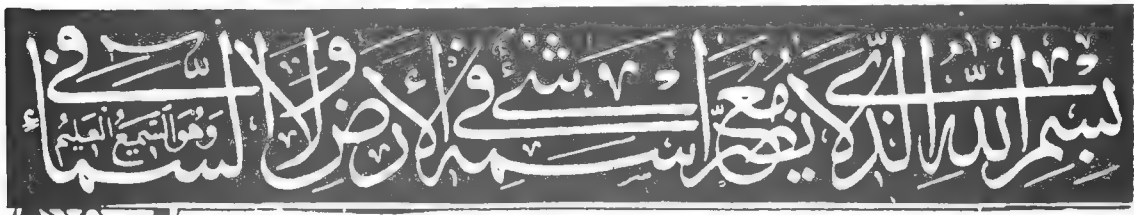 بِسْمِ اللّٰهِ الَّذِي لَا يَضُرُّ مَعَ اسْمِهِ شَيْءٌ فِي الْأَرْضِ وَلَا فِي السَّمَاءِ وَهُوَ السَّمِيعُ الْعَلِيمُ